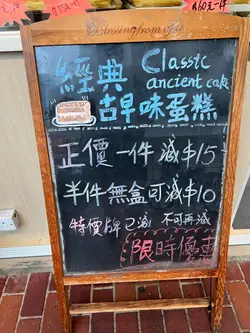 Blessing from
Classic
ancient cake
經典
古早味蛋糕
正價一件減$15
半件無盒可減$10
特價牌已減 不可再減
限時優惠